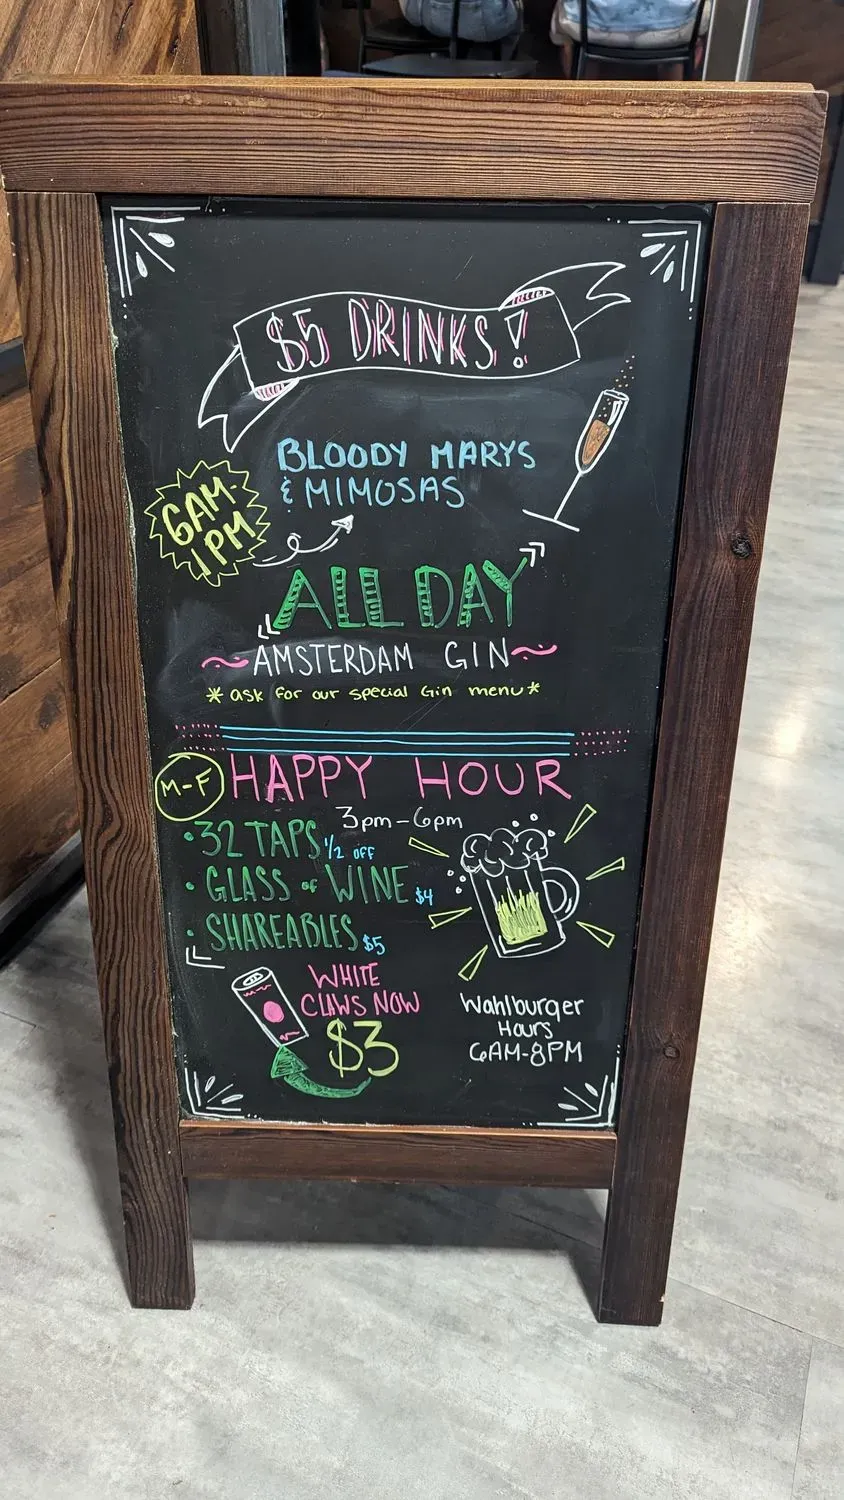 $5 DRINKS!
BLOODY MARYS
& MIMOSAS
6AM-
1PM
ALL DAY
AMSTERDAM GIN
*ask for our special Gin menu*
M-F HAPPY HOUR
3pm-6pm
• 32 TAPS 1/2 OFF
• GLASS of WINE $4
• SHAREABLES $5
WHITE
CLAWS NOW
$3
Wahlburger
Hours
6AM-8PM